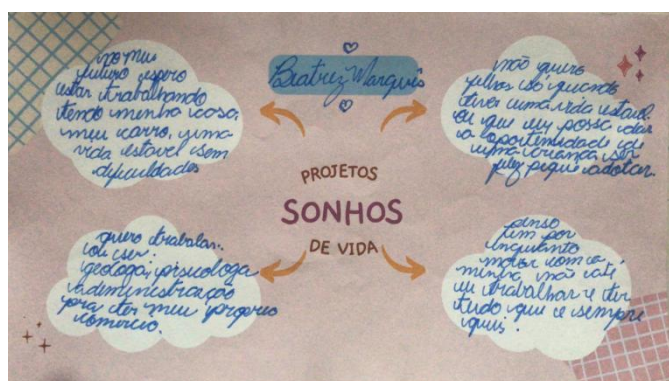 Beatriz Marquês
no meu
futuro espero
estar trabalhando
tendo minha casa,
meu carro, uma
vida estavel sem
dificuldades
não quero
filhos só quando
tiver uma vida estavel.
ou que eu possa dar
a oportunidade de
uma criança ser
feliz adotar.
PROJETOS
SONHOS
DE VIDA
quero trabalar..
de ser.
geologa, pisicologa
administração
pra ter meu proprio
comercio.
penso
em por
enquanto
morar com a
minha mãe até
eu trabalhar e ter
tudo que e sempre
quis.